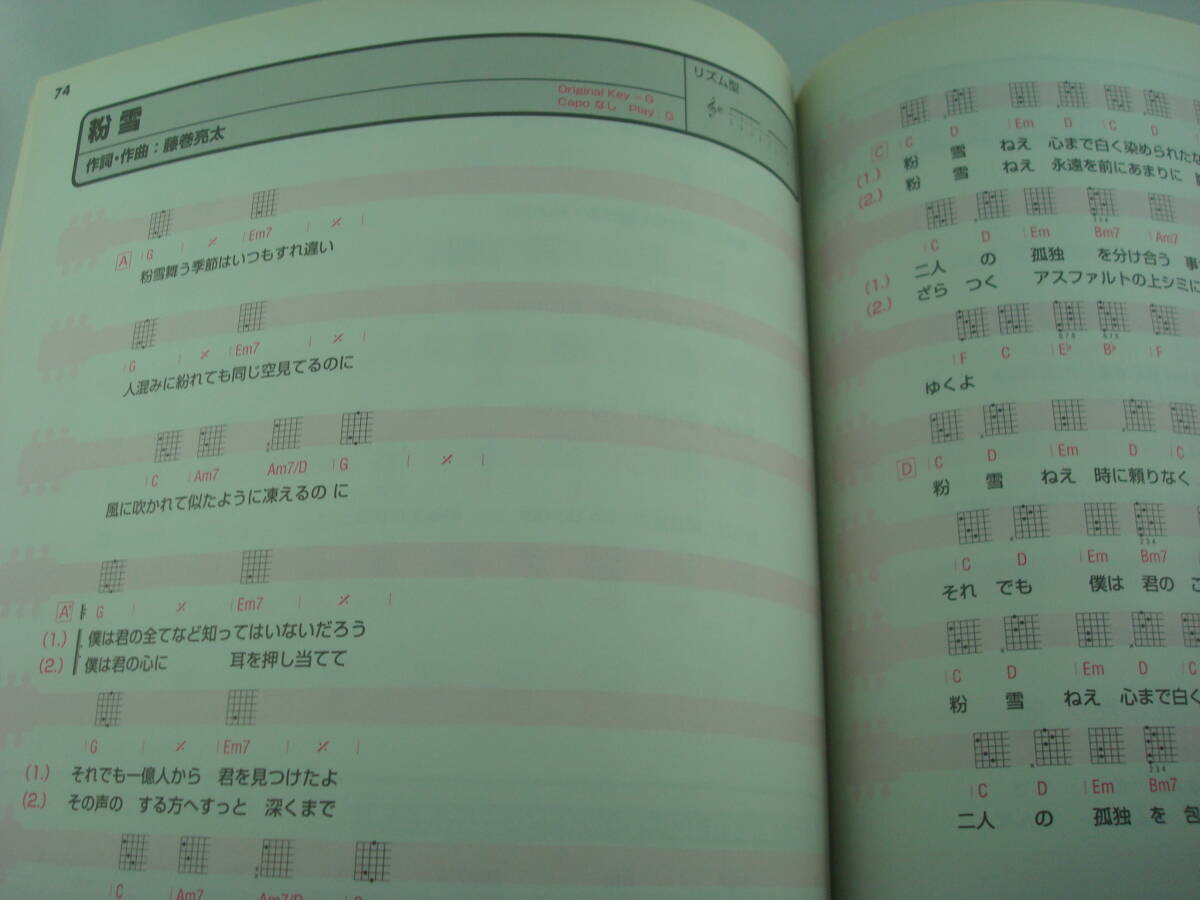 74
粉雪
作詞・作曲：藤巻亮太
Original Key – G
Capo なし Play : G
リズム型
A G ٪ Em7 ٪
粉雪舞う季節はいつもすれ違い
G ٪ Em7 ٪
人混みに紛れても同じ空見てるのに
C Am7 Am7/D G ٪
風に吹かれて似たように凍えるの に
A' G ٪ Em7 ٪
(1.) 僕は君の全てなど知ってはいないだろう
(2.) 僕は君の心に 耳を押し当てて
G ٪ Em7 ٪
(1.) それでも一億人から 君を見つけたよ
(2.) その声の する方へすっと 深くまで
C Am7 Am7/D G
C C D Em D C D
(1.) 粉 雪 ねえ 心まで白く染められたな
(2.) 粉 雪 ねえ 永遠を前にあまりに
C D Em Bm7 Am7
(1.) 二人 の 孤独 を分け合う 事
(2.) ざら つく アスファルトの上シミに
F C E♭ B♭ F
ゆくよ
D C D Em D C
粉 雪 ねえ 時に頼りなく
C D Em Bm7
それ でも 僕は 君の こ
C D Em D C
粉 雪 ねえ 心まで白く
C D Em Bm7
二人 の 孤独 を 包